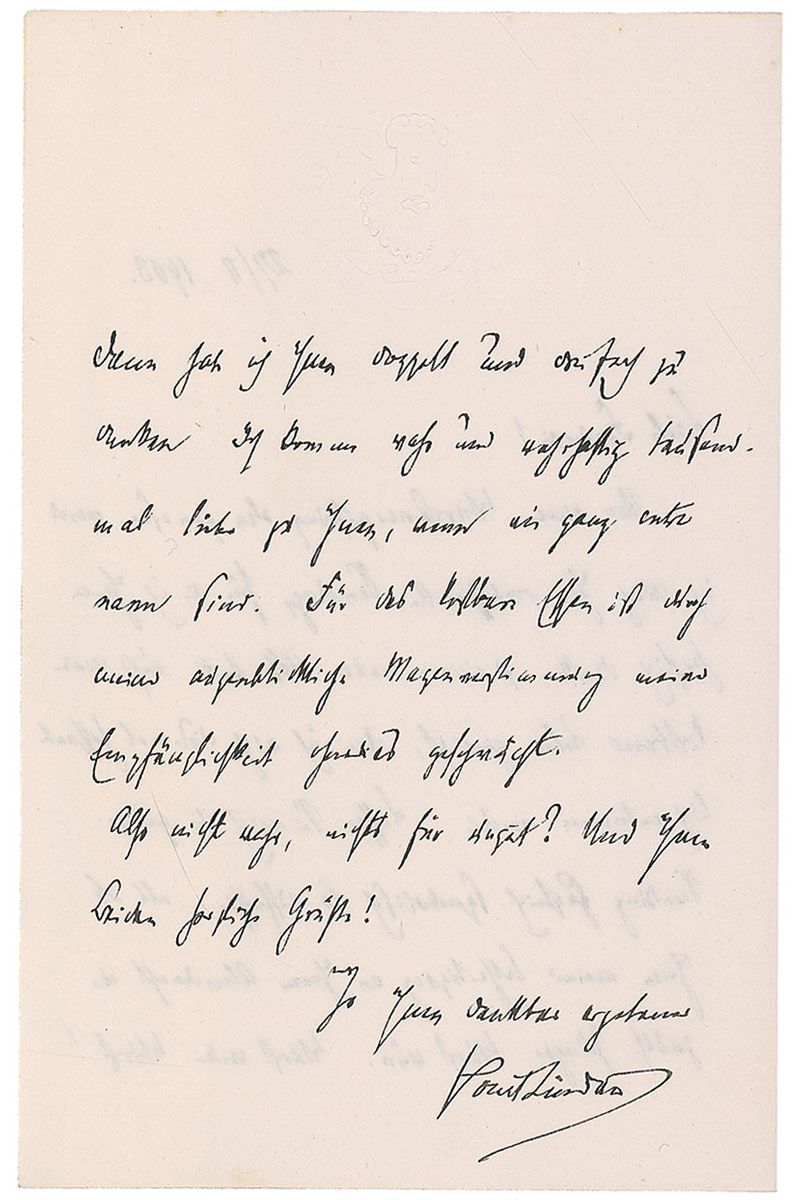 dann hab ich Ihnen doppelt und dreifach zu
danken. Ich komme wahr und wahrhaftig tausend-
mal lieber zu Ihnen, wenn wir ganz entre
nous sind. Für das kostbare Essen ist durch
meine augenblickliche Magenverstimmung meine
Empfänglichkeit ohnedies geschwächt.
Also nicht wahr, nichts für ungut? Und Ihnen
Beiden herzliche Grüße!
Ihr Ihnen dankbar ergebener